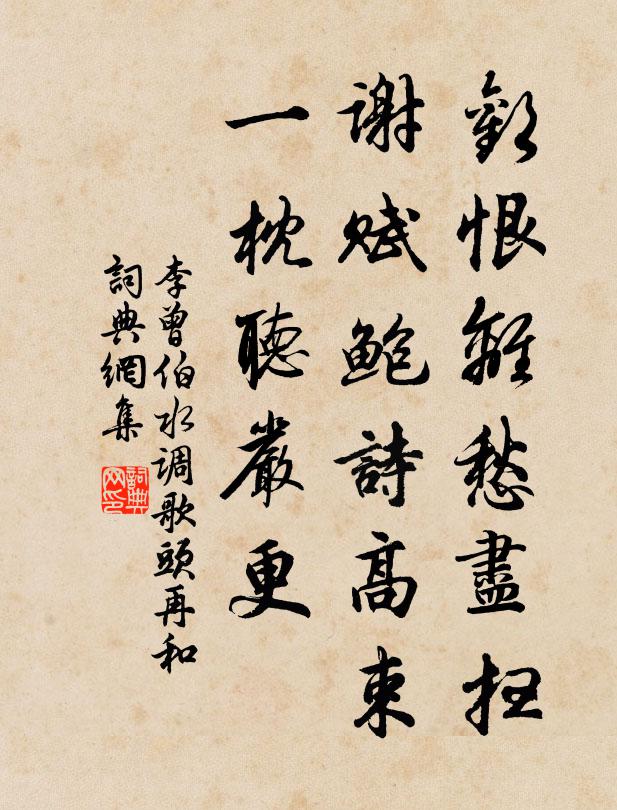 歡恨離愁盡扫
謝賦鮑詩高束
一枕聽嚴更
李曾伯水调歌頭再和
詞典網集
詞典网印